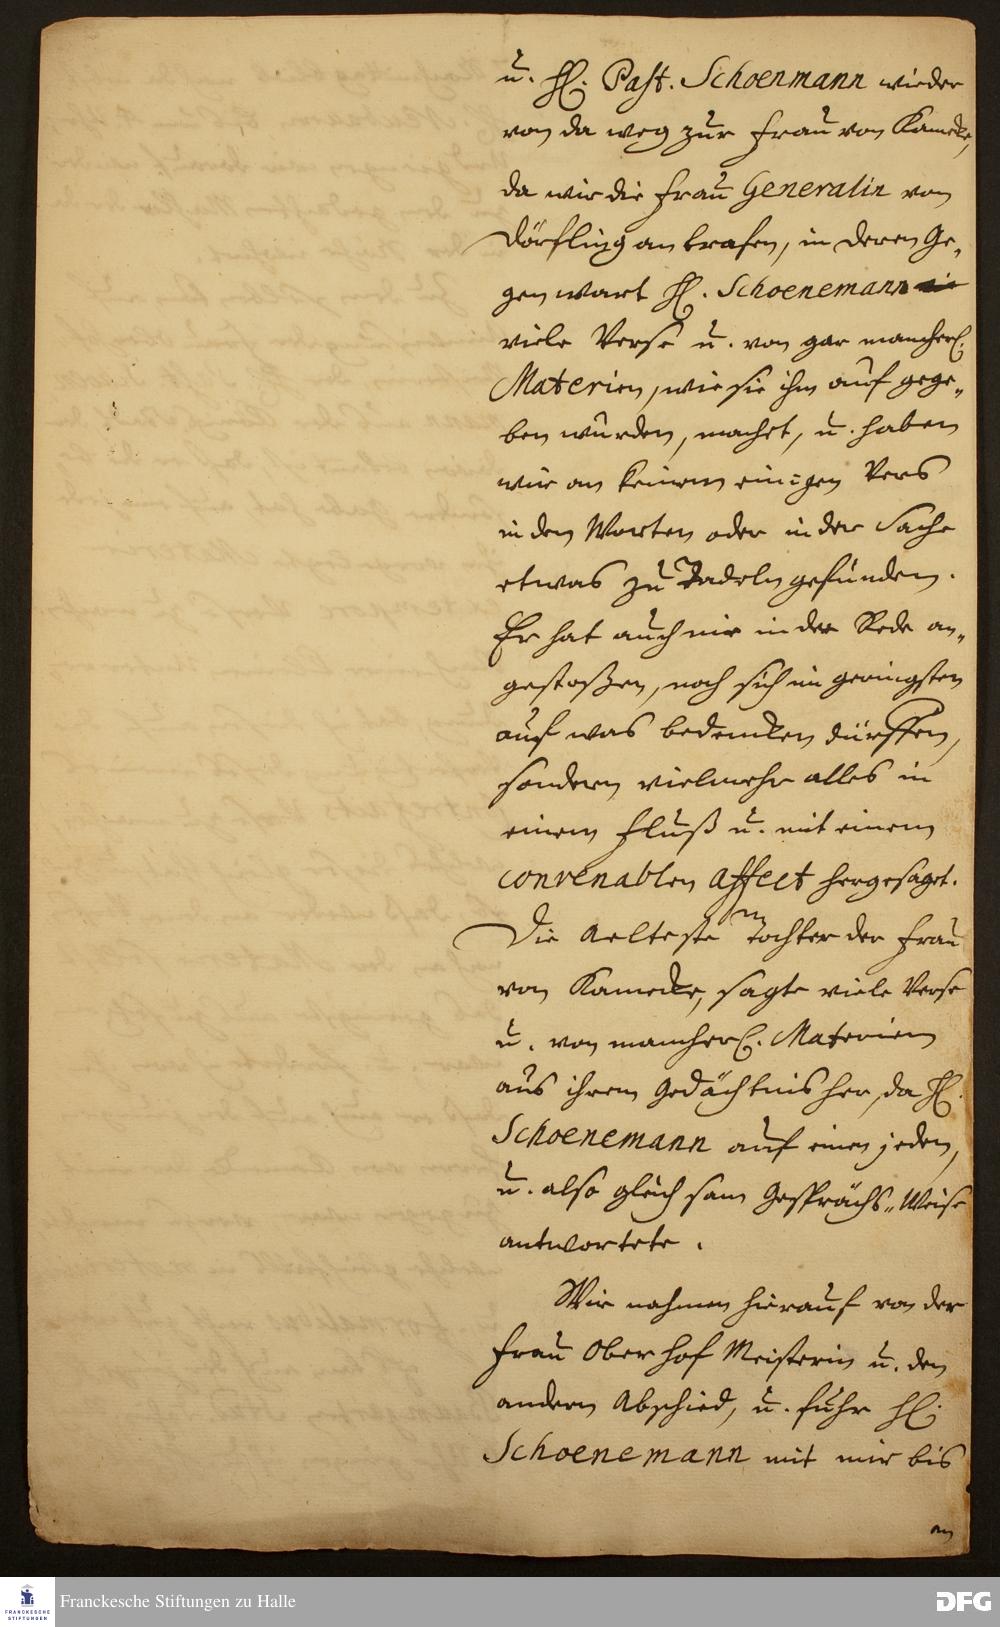 u. H. Past. Schoenmann wieder
von da weg zur Frau von Kamecke,
da wir die Frau Generalin von
Dörfling antrafen, in deren Ge-
genwart H. Schoenemann
viele Verse u. von gar mancherl.
Materien, wie sie ihm aufgege-
ben wurden, macht, u. haben
wir an keinem einigen Vers
in den Worten oder in der Sache
etwas zu Tadeln gefunden.
Er hat auch nie in der Rede an-
gestoßen, noch sich im geringsten
auf was bedencken dürffen,
sondern vielmehr alles in
einem Fluß u. mit einem
convenablen affect hergesaget.
Die Aelteste Tochter der Frau
von Kamecke, sagte viele Verse
u. von mancherl. Materien
aus ihrem Gedächtnis her, da H.
Schoenemann auf einen jeden,
u. also gleichsam Gesprächs-Weise
antwortete.
Wir nahmen hierauf von der
Frau Ober Hof Meisterin u. den
andern Abschied, u. fuhr H.
Schoenemann mit mir bis
an
FRANCKESCHE STIFTUNGEN
Franckesche Stiftungen zu Halle
DFG